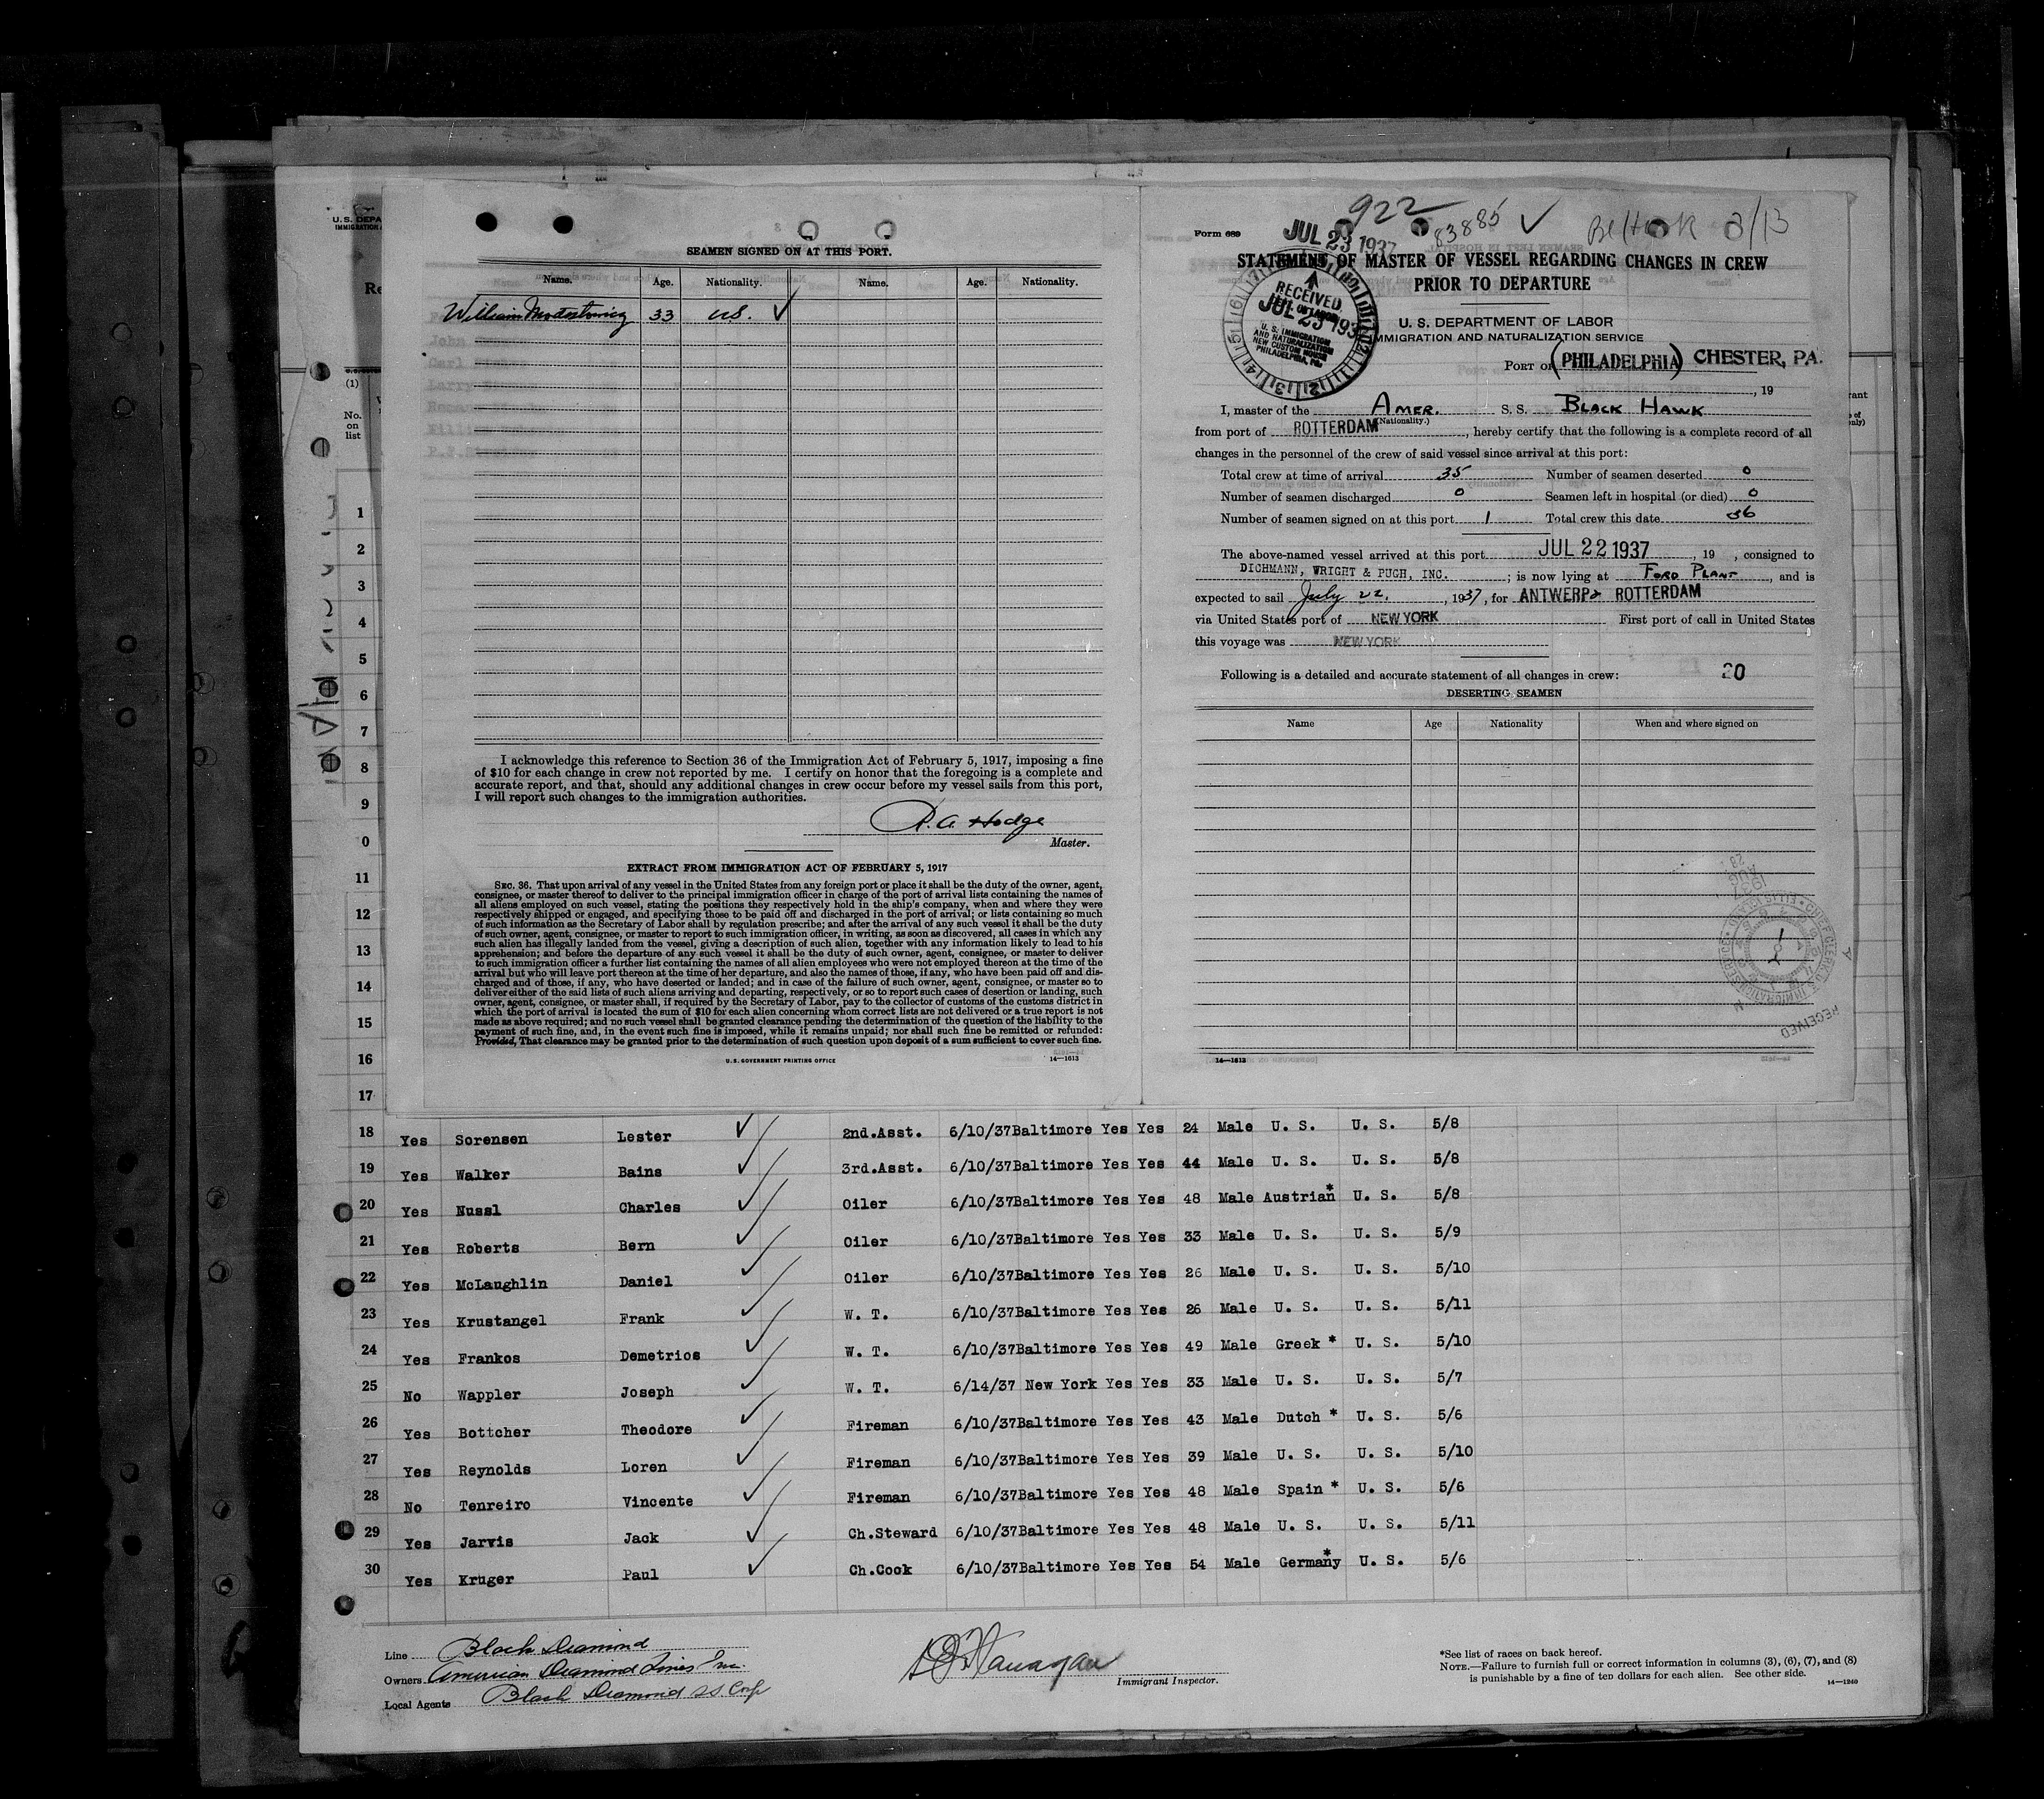 U.S. DEPA
IMMIGRATION
Re
(1)
No.
on
list
SEAMEN SIGNED ON AT THIS PORT.
Name. Age. Nationality. Name. Age. Nationality.
William 33 U.S. ✓
I acknowledge this reference to Section 36 of the Immigration Act of February 5, 1917, imposing a fine
of $10 for each change in crew not reported by me. I certify on honor that the foregoing is a complete and
accurate report, and that, should any additional changes in crew occur before my vessel sails from this port,
I will report such changes to the immigration authorities.
R. A. Hodge
Master.
EXTRACT FROM IMMIGRATION ACT OF FEBRUARY 5, 1917
SEC. 36. That upon arrival of any vessel in the United States from any foreign port or place it shall be the duty of the owner, agent,
consignee, or master thereof to deliver to the principal immigration officer in charge of the port of arrival lists containing the names of
all aliens employed on such vessel, stating the positions they respectively hold in the ship's company, when and where they were
respectively shipped or engaged, and specifying those to be paid off and discharged in the port of arrival; or lists containing so much
of such information as the Secretary of Labor shall by regulation prescribe; and after the arrival of any such vessel it shall be the duty
of such owner, agent, consignee, or master to report to such immigration officer, in writing, as soon as discovered, all cases in which any
such alien has illegally landed from the vessel, giving a description of such alien, together with any information likely to lead to his
apprehension; and before the departure of any such vessel it shall be the duty of such owner, agent, consignee, or master to deliver
to such immigration officer a further list containing the names of all alien employees who were not employed thereon at the time of the
arrival but who will leave port thereon at the time of her departure, and also the names of those, if any, who have been paid off and dis-
charged and of those, if any, who have deserted or landed; and in case of the failure of such owner, agent, consignee, or master so to
deliver either of the said lists of such aliens arriving and departing, respectively, or so to report such cases of desertion or landing, such
owner, agent, consignee, or master shall, if required by the Secretary of Labor, pay to the collector of customs of the customs district in
which the port of arrival is located the sum of $10 for each alien concerning whom correct lists are not delivered or a true report is not
made as above required; and no such vessel shall be granted clearance pending the determination of the question of the liability to the
payment of such fine, and, in the event such fine is imposed, while it remains unpaid; nor shall such fine be remitted or refunded:
Provided, That clearance may be granted prior to the determination of such question upon deposit of a sum sufficient to cover such fine.
U.S. GOVERNMENT PRINTING OFFICE 14—1613
922
83885 ✓
3/13
Form 689
JUL 23 1937
STATEMENT OF MASTER OF VESSEL REGARDING CHANGES IN CREW
PRIOR TO DEPARTURE
RECEIVED
JUL 23 193
U. S. IMMIGRATION
AND NATURALIZATION
NEW CUSTOM HOUSE
PHILADELPHIA, PA.
U. S. DEPARTMENT OF LABOR
IMMIGRATION AND NATURALIZATION SERVICE
PORT OF (PHILADELPHIA) CHESTER, PA.
, 19
I, master of the AMER. S. S. BLACK HAWK
(Nationality.)
from port of ROTTERDAM, hereby certify that the following is a complete record of all
changes in the personnel of the crew of said vessel since arrival at this port:
Total crew at time of arrival 35 Number of seamen deserted 0
Number of seamen discharged 0 Seamen left in hospital (or died) 0
Number of seamen signed on at this port 1 Total crew this date 36
The above-named vessel arrived at this port JUL 22 1937, 19 , consigned to
DICHMANN, WRIGHT & PUGH, INC. ; is now lying at FORD PLANT, and is
expected to sail July 22, 1937, for ANTWERP & ROTTERDAM
via United States port of NEW YORK First port of call in United States
this voyage was NEW YORK
Following is a detailed and accurate statement of all changes in crew: 20
DESERTING SEAMEN
Name Age Nationality When and where signed on
14—1613
1
2
3
4
5
6
7
8
9
0
11
12
13
14
15
16
17
18 Yes Sorensen Lester ✓ 2nd.Asst. 6/10/37 Baltimore Yes Yes 24 Male U. S. U. S. 5/8
19 Yes Walker Bains ✓ 3rd.Asst. 6/10/37 Baltimore Yes Yes 44 Male U. S. U. S. 5/8
20 Yes Nussl Charles ✓ Oiler 6/10/37 Baltimore Yes Yes 48 Male Austrian * U. S. 5/8
21 Yes Roberts Bern ✓ Oiler 6/10/37 Baltimore Yes Yes 33 Male U. S. U. S. 5/9
22 Yes McLaughlin Daniel ✓ Oiler 6/10/37 Baltimore Yes Yes 26 Male U. S. U. S. 5/10
23 Yes Krustangel Frank ✓ W. T. 6/10/37 Baltimore Yes Yes 26 Male U. S. U. S. 5/11
24 Yes Frankos Demetrios ✓ W. T. 6/10/37 Baltimore Yes Yes 49 Male Greek * U. S. 5/10
25 No Wappler Joseph ✓ W. T. 6/14/37 New York Yes Yes 33 Male U. S. U. S. 5/7
26 Yes Bottcher Theodore ✓ Fireman 6/10/37 Baltimore Yes Yes 43 Male Dutch * U. S. 5/6
27 Yes Reynolds Loren ✓ Fireman 6/10/37 Baltimore Yes Yes 39 Male U. S. U. S. 5/10
28 No Tenreiro Vincente ✓ Fireman 6/10/37 Baltimore Yes Yes 48 Male Spain * U. S. 5/6
29 Yes Jarvis Jack ✓ Ch.Steward 6/10/37 Baltimore Yes Yes 48 Male U. S. U. S. 5/11
30 Yes Kruger Paul ✓ Ch.Cook 6/10/37 Baltimore Yes Yes 54 Male Germany * U. S. 5/6
Line Black Diamond
Owners American Diamond Lines Inc.
Local Agents Black Diamond SS. Corp
Immigrant Inspector.
*See list of races on back hereof.
NOTE.—Failure to furnish full or correct information in columns (3), (6), (7), and (8)
is punishable by a fine of ten dollars for each alien. See other side.
14—1240